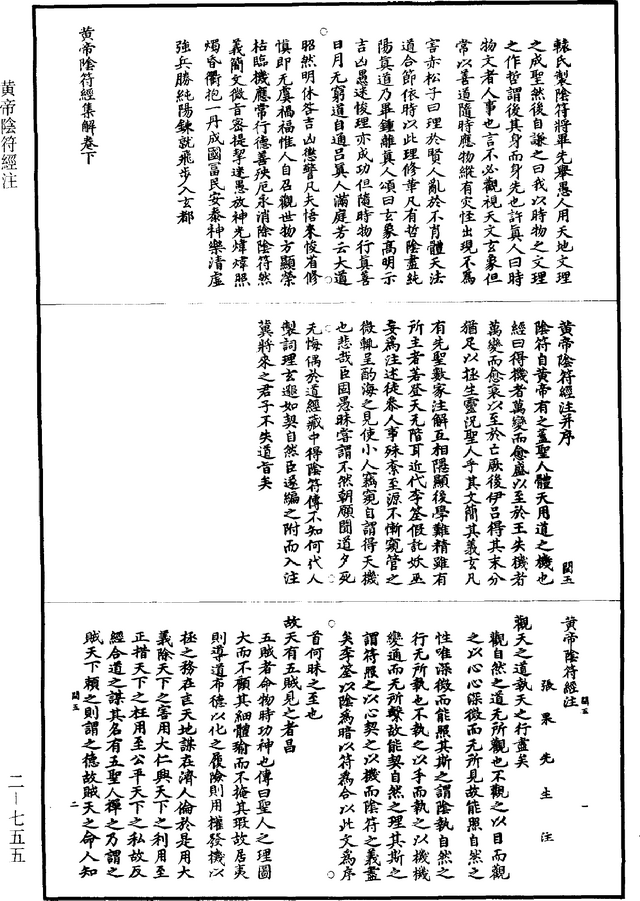 轅氏製陰符將畢先舉愚人用天地文理
之成聖然後自謙之曰我以時物之文理
之作哲謂後其身而身先也許真人曰時
物文者人事也言不必觀視天文玄象但
常以善道隨時應物縱有灾恠出現不為
害赤松子曰理於賢人亂於不肖體天法
道合節依時以此理修華凡有哲陰盡純
陽真道乃畢鍾離真人頌曰玄象高明示
吉凶愚迷悛理亦成功但隨時物行真善
日月无窮道自通呂真人滿庭芳云大道
昭然明休咎吉凶懲警凡夫悟来悛省修
慎即无虞禍福惟人自召觀世物方顯榮
枯臨機應常行德善殃厄永消除陰符然
義簡文微音密提挈迷愚放神光煒煒照
燭昏衢抱一丹成國富民安泰神樂清虛
強兵勝純陽鍊就飛步入玄都
黃帝陰符經集解卷下
黃帝陰符經注并序
閏五
陰符自黃帝有之蓋聖人體天用道之機也
經曰得機者萬變而愈盛以至於王失機者
萬變而愈衰以至於亡厥後伊呂得其末分
猶足以拯生靈況聖人乎其文簡其義玄凡
有先聖數家注解互相隱顯後學難精雖有
所主者若登天无階耳近代李筌假託妖巫
妄為注述徒參人事殊紊至源不慚窺管之
微輒呈酌海之見使小人竊窺自謂得天機
也悲哉臣固愚昧嘗謂不然朝願聞道夕死
无悔偶於道經藏中得陰符傳不知何代人
製詞理玄邈如契自然臣遂編之附而入注
冀將來之君子不失道旨矣
黃帝陰符經注
閏五
一
張果先生注
觀天之道執天之行盡矣
觀自然之道无所觀也不觀之以目而觀
之以心心深微而无所見故能照自然之
性唯深微而能照其斯之謂陰執自然之
行无所執也不執之以手而執之以機機
變通而无所繫故能契自然之理其斯之
謂符照之以心契之以機而陰符之義盡
矣李筌以陰為暗以符為合以此文為序
首何昧之至也
故天有五賊見之者昌
五賊者命物時功神也傳曰聖人之理圖
大而不顧其細體瑜而不掩其瑕故居夷
則導道布德以化之履險則用權發機以
拯之務在匡天地謀在濟人倫於是用大
義除天下之害用大仁興天下之利用至
正措天下之枉用至公平天下之私故反
經合道之謀其名有五聖人禪之乃謂之
賊天下賴之則謂之德故賊天之命人知
閏五
二
黃帝陰符經注
二－七五五